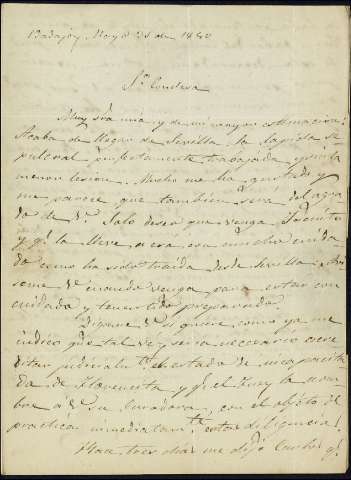 Badajoz Mayo 21 de 1880
Sra Condesa
Muy Sra mia y de mi mayor estimacion:
Acaba de llegar de Sevilla la lapida se
pulcral perfectamente trabajada y sin la
menor lesion. Mucho me ha gustado y
me parece que tambien será del agra
do de V. Solo deseo que venga
y qe la lleve a esa con mucho cuida
do como ha sido traida desde Sevilla. Aví
seme V. cuando venga para estar con
cuidado y tenerlo preparado.
Digame V. si quiere, como ya me
indicó que tal vez seria necesario acre
ditar judicialmte el estado de incapacita
da de Florencia y qe el Juez la nom
bre á V. su curadora, con el objeto de
practicar inmediatamte estas diligencias.
Hace tres dias me dijo qe